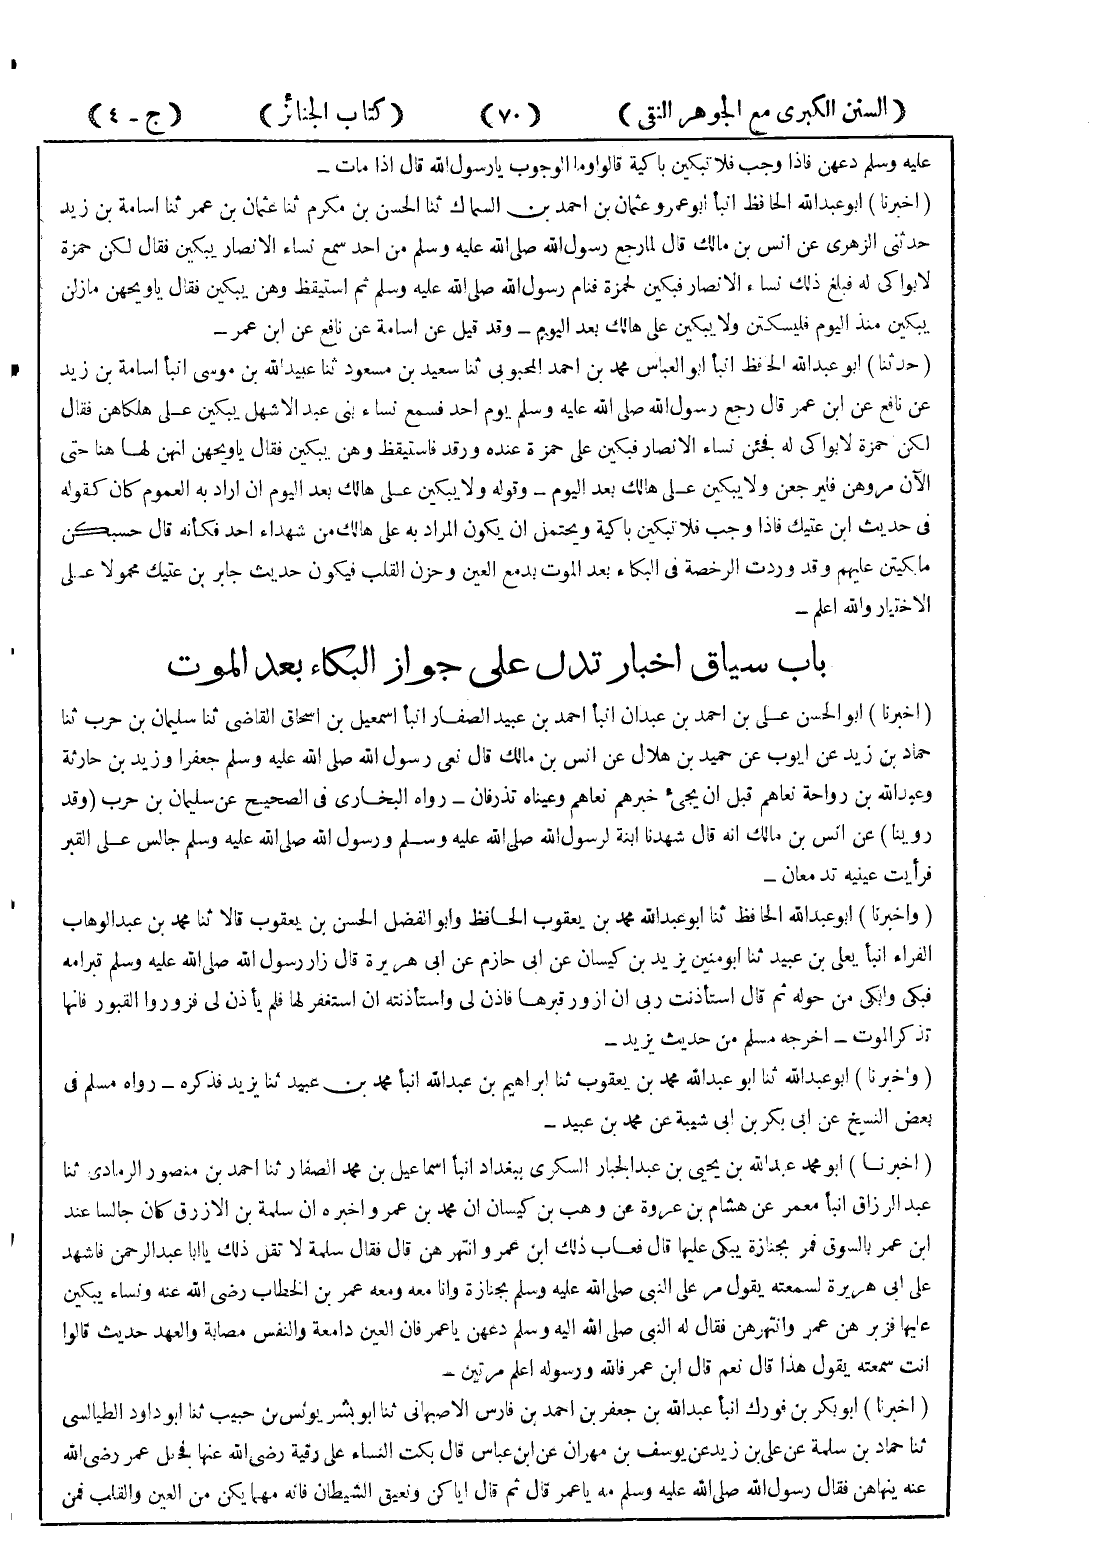 (السنن الكبرى مع الجوهر النقى) (٧٠) (كتاب الجنائز) (ج - ٤)
عليه وسلم دعهن فاذا وجب فلا تبكين باكية قالوا وما الوجوب يارسول الله قال اذا مات ـ
(اخبرنا) ابوعبدالله الحافظ انبأ ابوعمرو عثمان بن احمد بن السماك ثنا الحسن بن مكرم ثنا عثمان بن عمر ثنا اسامة بن زيد
حدثنى الزهرى عن انس بن مالك قال لما رجع رسول الله صلى الله عليه وسلم من احد سمع نساء الانصار يبكين فقال لكن حمزة
لا بواكى له فبلغ ذلك نساء الانصار فبكين لحمزة فنام رسول الله صلى الله عليه وسلم ثم استيقظ وهن يبكين فقال ياويحهن مازلن
يبكين منذ اليوم فليسكتن ولا يبكين على هالك بعد اليوم ـ وقد قيل عن اسامة عن نافع عن ابن عمر ـ
(حدثنا) ابو عبدالله الحافظ انبأ ابو العباس محمد بن احمد المحبوبى ثنا سعيد بن مسعود ثنا عبيدالله بن موسى انبأ اسامة بن زيد
عن نافع عن ابن عمر قال رجع رسول الله صلى الله عليه وسلم يوم احد فسمع نساء بنى عبد الاشهل يبكين على هلكاهن فقال
لكن حمزة لا بواكى له فجئن نساء الانصار فبكين على حمزة عنده ورقد فاستيقظ وهن يبكين فقال ياويحهن انهن لها هنا حتى
الآن مروهن فليرجعن ولا يبكين على هالك بعد اليوم ـ وقوله ولا يبكين على هالك بعد اليوم ان اراد به العموم كان كقوله
فى حديث ابن عتيك فاذا وجب فلا تبكين باكية ويحتمل ان يكون المراد به على هالك من شهداء احد فكأنه قال حسبكن
مابكيتن عليهم وقد وردت الرخصة فى البكاء بعد الموت بدمع العين وحزن القلب فيكون حديث جابر بن عتيك محمولا على
الاختيار والله اعلم ـ
باب سياق اخبار تدل على جواز البكاء بعد الموت
(اخبرنا) ابو الحسن على بن احمد بن عبدان انبأ احمد بن عبيد الصفار انبأ اسمعيل بن اسحاق القاضى ثنا سليمان بن حرب ثنا
حماد بن زيد عن ايوب عن حميد بن هلال عن انس بن مالك قال نعى رسول الله صلى الله عليه وسلم جعفرا وزيد بن حارثة
وعبدالله بن رواحة نعاهم قبل ان يجىء خبرهم نعاهم وعيناه تذرفان ـ رواه البخارى فى الصحيح عن سليمان بن حرب (وقد
روينا) عن انس بن مالك انه قال شهدنا ابنة لرسول الله صلى الله عليه وسلم ورسول الله صلى الله عليه وسلم جالس على القبر
فرأيت عينيه تدمعان ـ
(واخبرنا) ابوعبدالله الحافظ ثنا ابوعبدالله محمد بن يعقوب الحافظ وابو الفضل الحسن بن يعقوب قالا ثنا محمد بن عبدالوهاب
الفراء انبأ يعلى بن عبيد ثنا ابومنين يزيد بن كيسان عن ابى حازم عن ابى هريرة قال زار رسول الله صلى الله عليه وسلم قبرامه
فبكى وابكى من حوله ثم قال استأذنت ربى ان ازور قبرها فاذن لى واستأذنته ان استغفر لها فلم يأذن لى فزوروا القبور فانها
تذكرالموت ـ اخرجه مسلم من حديث يزيد ـ
(واخبرنا) ابوعبدالله ثنا ابو عبدالله محمد بن يعقوب ثنا ابراهيم بن عبدالله انبأ محمد بن عبيد ثنا يزيد فذكره ـ رواه مسلم فى
بعض النسخ عن ابى بكر بن ابى شيبة عن محمد بن عبيد ـ
(اخبرنا) ابو محمد عبدالله بن يحيى بن عبدالجبار السكرى ببغداد انبأ اسماعيل بن محمد الصفار ثنا احمد بن منصور الرمادى ثنا
عبدالرزاق انبأ معمر عن هشام بن عروة عن وهب بن كيسان ان محمد بن عمرو اخبره ان سلمة بن الازرق كان جالسا عند
ابن عمر بالسوق فمر بجنازة يبكى عليها قال فعاب ذلك ابن عمر وانتهرهن قال فقال سلمة لا تقل ذلك ياابا عبدالرحمن فاشهد
على ابى هريرة لسمعته يقول مر على النبى صلى الله عليه وسلم بجنازة وانا معه ومعه عمر بن الخطاب رضى الله عنه ونساء يبكين
عليها فزبرهن عمر وانتهرهن فقال له النبى صلى الله اليه وسلم دعهن ياعمر فان العين دامعة والنفس مصابة والعهد حديث قالوا
انت سمعته يقول هذا قال نعم قال ابن عمر فالله ورسوله اعلم مرتين ـ
(اخبرنا) ابوبكر بن فورك انبأ عبدالله بن جعفر بن احمد بن فارس الاصبهانى ثنا ابو بشر يونس بن حبيب ثنا ابو داود الطيالسى
ثنا حماد بن سلمة عن على بن زيد عن يوسف بن مهران عن ابن عباس قال بكت النساء على رقية رضى الله عنها فجعل عمر رضى الله
عنه ينهاهن فقال رسول الله صلى الله عليه وسلم مه ياعمر قال ثم قال اياكن ونعيق الشيطان فانه مهما يكن من العين والقلب فمن